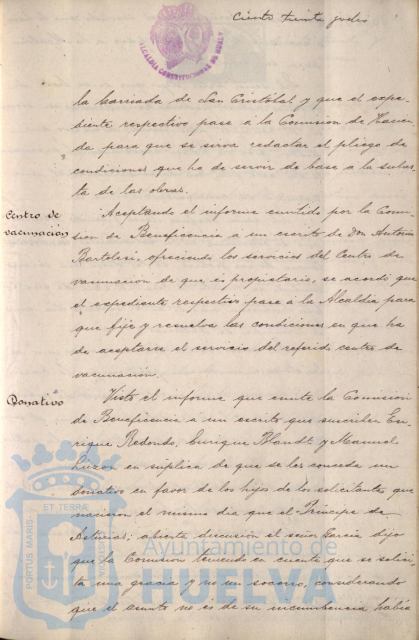 Ciento treinta y dos
ALCALDIA CONSTITUCIONAL DE HUELVA
la barriada de San Cristóbal y que el expe-
diente respectivo pase á la Comision de Hacien-
da para que se sirva redactar el pliego de
condiciones que ha de servir de base a la subas-
ta de las obras.
Centro de
vacunación
Aceptando el informe emitido por la Comi-
sion de Beneficencia a un escrito de Don Antonio
Bartolesi, ofreciendo los servicios del Centro de
vacunación de que es propietario, se acordó que
el expediente respectivo pase á la Alcaldia para
que fije y resuelva las condiciones en que ha
de aceptarse el servicio del referido centro de
vacunación.
Donativo
Visto el informe que emite la Comision
de Beneficencia a un escrito que suscriben En-
rique Redondo, Enrique Blandt y Manuel
Luzon en suplica de que se les conceda un
donativo en favor de los hijos de los solicitantes que
nacieron el mismo dia que el Principe de
Asturias; abierta discusión el señor García dijo
que la Comision teniendo en cuenta que se solici-
ta una gracia y no un socorro, considerando
que el asunto no es de su incumbencia habia
PORTUS MARIS
ET TERRÆ
CUSTODIA
Ayuntamiento de
HUELVA